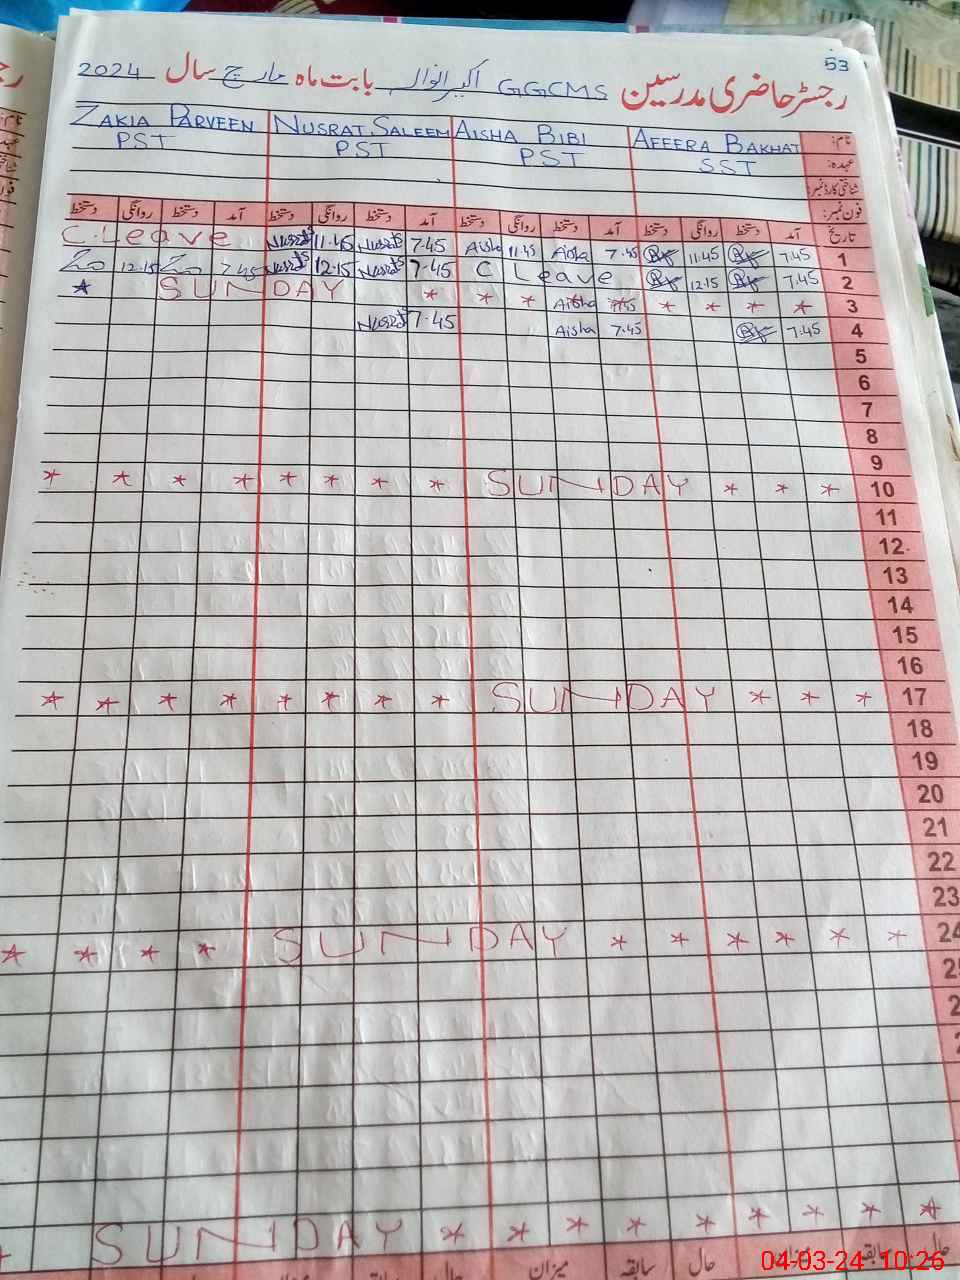 53
رجسٹر حاضری مدرسین GGCMS بابت ماہ مارچ سال 2024
نام: AFEERA BAKHAT AISHA BIBI NUSRAT SALEEM ZAKIA PARVEEN
عہدہ: SST PST PST PST
شناختی کارڈ نمبر:
فون نمبر:
تاریخ آمد دستخط روانگی دستخط آمد دستخط روانگی دستخط آمد دستخط روانگی دستخط آمد دستخط روانگی دستخط
C. Leave 11.45 7.45 Aisha 11.45 Aisha 7.45 11.45 7.45 1
12.15 7.45 12.15 7.45 C Leave 12.15 7.45 2
* SUNDAY * * * Aisha 7.45 * * * * 3
7.45 Aisha 7.45 7.45 4
5
6
7
8
9
* * * * * * * * SUNDAY * * * 10
11
12
13
14
15
16
* * * * * * * * SUNDAY * * * 17
18
19
20
21
22
23
* * * * SUNDAY * * * * * * 24
SUNDAY * * * * * * * * *
حال سابقہ میزان حال سابقہ میزان
04-03-24 10:26